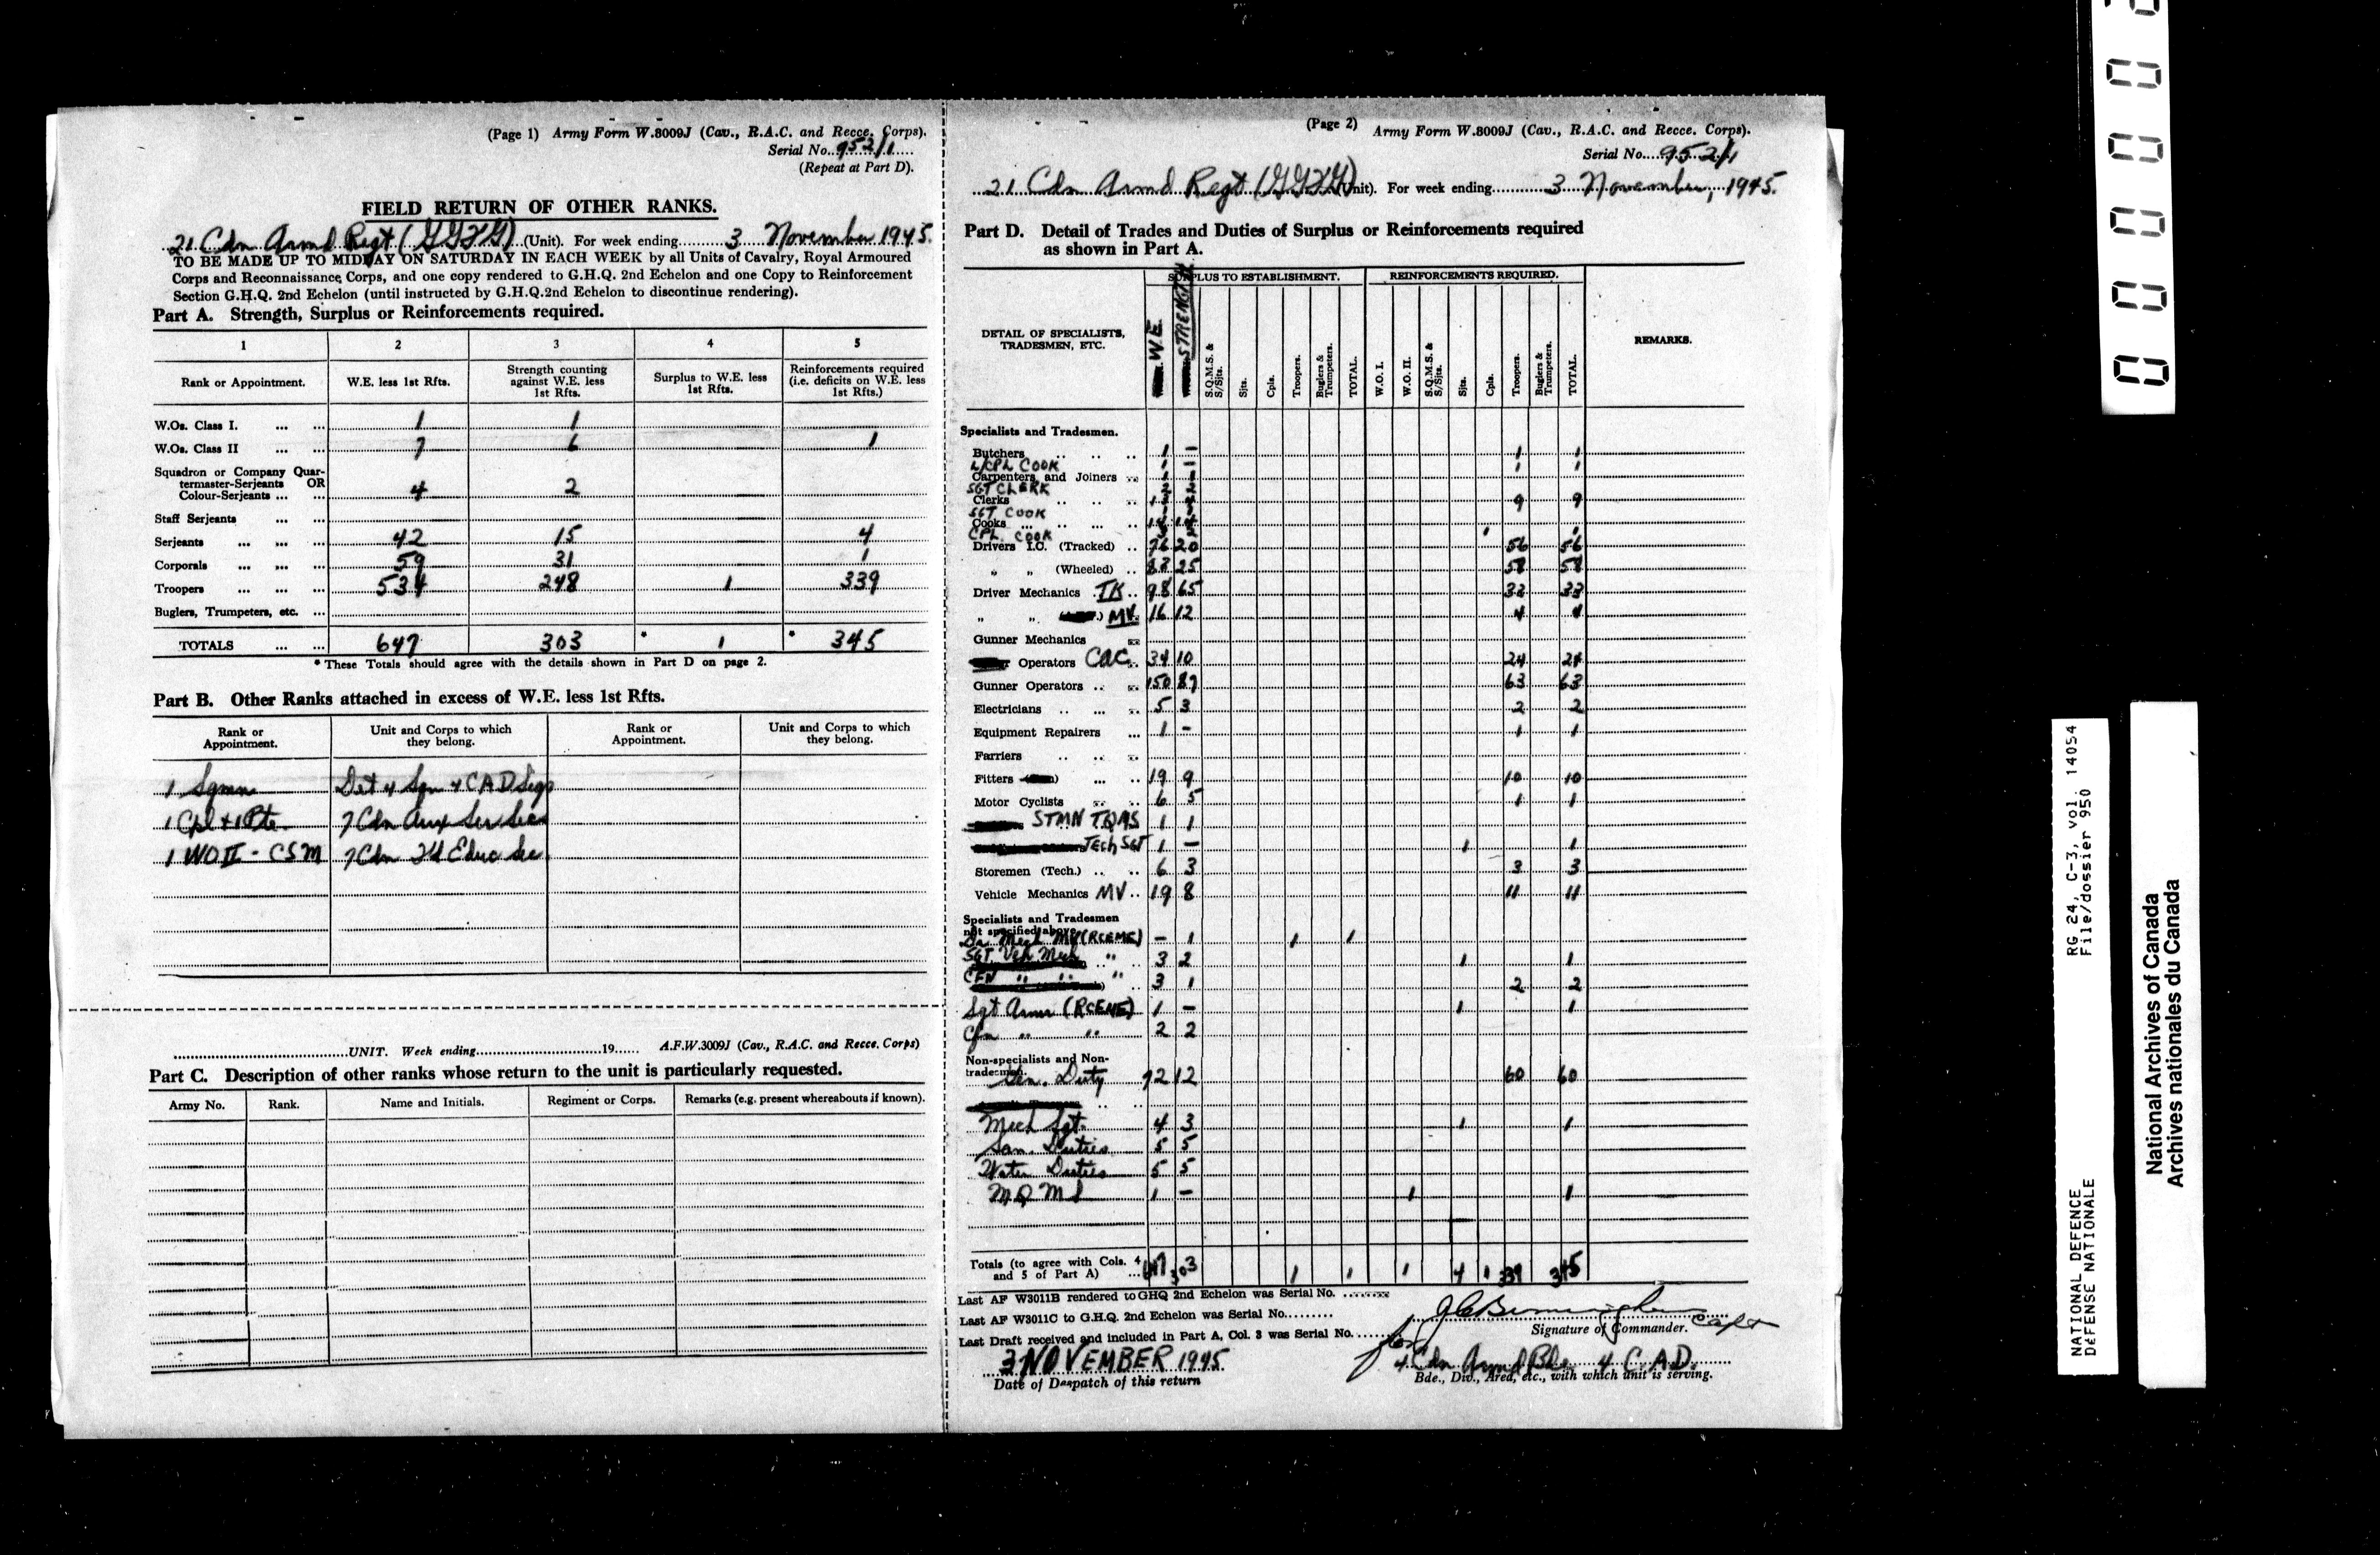 (Page 1) Army Form W.8009J (Cav., R.A.C. and Recce. Corps).
Serial No. 952/1
(Repeat at Part D).
FIELD RETURN OF OTHER RANKS.
21 Cdn Armd Regt (GGFG) (Unit). For week ending 3 November 1945.
TO BE MADE UP TO MIDDAY ON SATURDAY IN EACH WEEK by all Units of Cavalry, Royal Armoured
Corps and Reconnaissance Corps, and one copy rendered to G.H.Q. 2nd Echelon and one Copy to Reinforcement
Section G.H.Q. 2nd Echelon (until instructed by G.H.Q.2nd Echelon to discontinue rendering).
Part A. Strength, Surplus or Reinforcements required.
1 2 3 4 5
Rank or Appointment. W.E. less 1st Rfts. Strength counting against W.E. less 1st Rfts. Surplus to W.E. less 1st Rfts. Reinforcements required (i.e. deficits on W.E. less 1st Rfts.)
W.Os. Class I. ... ... 1 1
W.Os. Class II ... ... 7 6 1
Squadron or Company Quar-
termaster-Serjeants OR
Colour-Serjeants ... ... 4 2
Staff Serjeants ... ...
Serjeants ... ... ... 42 15 4
Corporals ... ... ... 59 31 1
Troopers ... ... ... 534 248 1 339
Buglers, Trumpeters, etc. ...
TOTALS ... ... 647 303 * 1 * 345
* These Totals should agree with the details shown in Part D on page 2.
Part B. Other Ranks attached in excess of W.E. less 1st Rfts.
Rank or Appointment. Unit and Corps to which they belong. Rank or Appointment. Unit and Corps to which they belong.
1 Sgmn Det 4 Sqn 4 CAD Sigs
1 Cpl + 1 Pte 7 Cdn Aux Ser Sec
1 WO II - CSM 7 Cdn Fd Educ Sec
UNIT. Week ending 19 A.F.W.3009J (Cav., R.A.C. and Recce. Corps)
Part C. Description of other ranks whose return to the unit is particularly requested.
Army No. Rank. Name and Initials. Regiment or Corps. Remarks (e.g. present whereabouts if known).
(Page 2) Army Form W.8009J (Cav., R.A.C. and Recce. Corps).
Serial No. 952/1
21 Cdn Armd Regt (GGFG) (Unit). For week ending 3 November, 1945.
Part D. Detail of Trades and Duties of Surplus or Reinforcements required
as shown in Part A.
SURPLUS TO ESTABLISHMENT. REINFORCEMENTS REQUIRED.
DETAIL OF SPECIALISTS, TRADESMEN, ETC. W.E. STRENGTH S.Q.M.S. & S/Sjts. Sjts. Cpls. Troopers. Buglers & Trumpeters. TOTAL. W.O. I. W.O. II. S.Q.M.S. & S/Sjts. Sjts. Cpls. Troopers. Buglers & Trumpeters. TOTAL. REMARKS.
Specialists and Tradesmen.
Butchers .. .. .. 1 – 1 1
L/CPL COOK 1 – 1 1
Carpenters and Joiners 1 1
SGT CLERK
Clerks .. .. .. 9 9
SGT COOK
Cooks ... .. ... .. 14 14
CPL. COOK 1 1
Drivers I.C. (Tracked) .. 76 20 56 56
" " (Wheeled) .. 83 25 58 58
Driver Mechanics TK .. 98 65 33 33
" " MV. 16 12 4 4
Gunner Mechanics
Operators CAC .. 34 10 24 24
Gunner Operators .. 150 87 63 63
Electricians .. ... .. 5 3 2 2
Equipment Repairers ... 1 – 1 1
Farriers .. ..
Fitters ... .. 19 9 10 10
Motor Cyclists .. .. 6 5 1 1
STMN TQMS 1 1
Tech SGT 1 – 1 1
Storemen (Tech.) .. .. 6 3 3 3
Vehicle Mechanics MV .. 19 8 11 11
Specialists and Tradesmen
not specified above
Dr Mech MV (RCEME) – 1 1 1
SGT Veh Mech " 3 2 1 1
CFN " " " 3 1 2 2
Sgt Armr (RCEME) 1 – 1 1
Cfn " " 2 2
Non-specialists and Non-
tradesmen.
Gen. Duty 72 12 60 60
Mech Sgt. 4 3 1 1
San. Duties 5 5
Water Duties 5 5
1 – 1 1
Totals (to agree with Cols. 4
and 5 of Part A) ... 647 303 1 1 1 4 1 339 345
Last AF W3011B rendered to GHQ 2nd Echelon was Serial No.
Last AF W3011C to G.H.Q. 2nd Echelon was Serial No.
Last Draft received and included in Part A, Col. 3 was Serial No.
for Capt
Signature of Commander.
3 NOVEMBER 1945
Date of Despatch of this return
4 Cdn Armd Bde 4 C.A.D.
Bde., Div., Area, etc., with which unit is serving.
NATIONAL DEFENCE
DÉFENSE NATIONALE
RG 24, C-3, vol. 14054
File/dossier 950
National Archives of Canada
Archives nationales du Canada